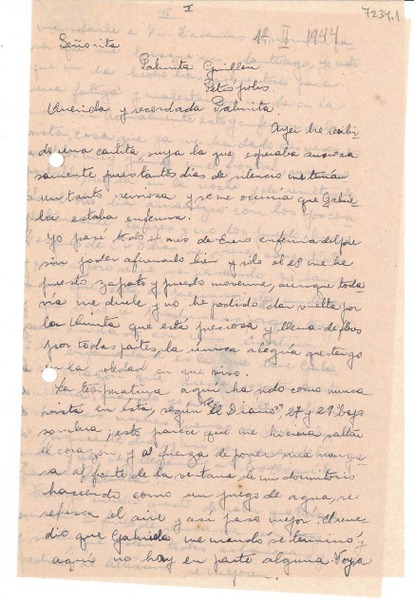 I
7234.1
1º II 1944
Señorita
Palmita Guillén
Petrópolis
Querida y recordada Palmita:
Ayer he recibi-
do una cartita suya la que esperaba ansiosa
mente pues tantos días de silencio me tenían
un tanto nerviosa y se me ocurría que Gabrie
la estaba enferma.
Yo pasé todo el mes de Enero enferma del pie
sin poder afirmarlo bien y sólo el 28 me he
puesto zapato y puedo moverme, aunque toda-
vía me duele y no he podido dar vuelta por
la Quinta que está preciosa y llena de flores
por todas partes, la única alegría que tengo
en la soledad en que vivo.
La temperatura aquí ha sido como nunca
vista en ésta, según "El Diario", 27 y 29 bajo
sombra; esto parece que me hiciera saltar
el corazón, y al fuerza de poner una mangue
ra al frente de la ventana de mi dormitorio
haciendo como un juego de agua, se
refresca el aire y así paso mejor. El reme-
dio que Gabriela me mandó se terminó y
aquí no hay en parte alguna. Voy a